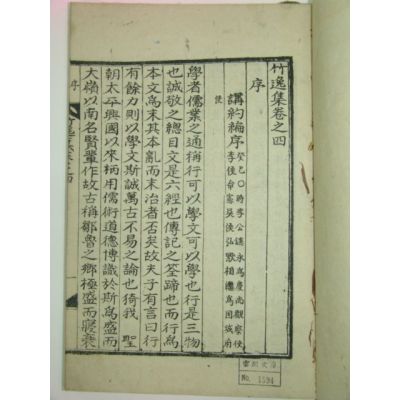 竹逸集卷之四
序
講約編序
癸巳○時李公謙永爲慶尙觀察使
李侯台憲吳侯弘默相繼爲固城府
使
學者儒業之通稱行可以學文可以學也行是三物
也誠敬之總目文是六經也傳記之筌蹄也而行爲
本文爲末其本亂而末治者否矣故夫子有言曰行
有餘力則以學文斯誠萬古不易之論也猗我 聖
朝太平興國以來柄用儒術道德博識於斯爲盛而
大嶺以南名賢輩作故古稱鄒魯之鄉極盛而寢衰
序
No. 1594